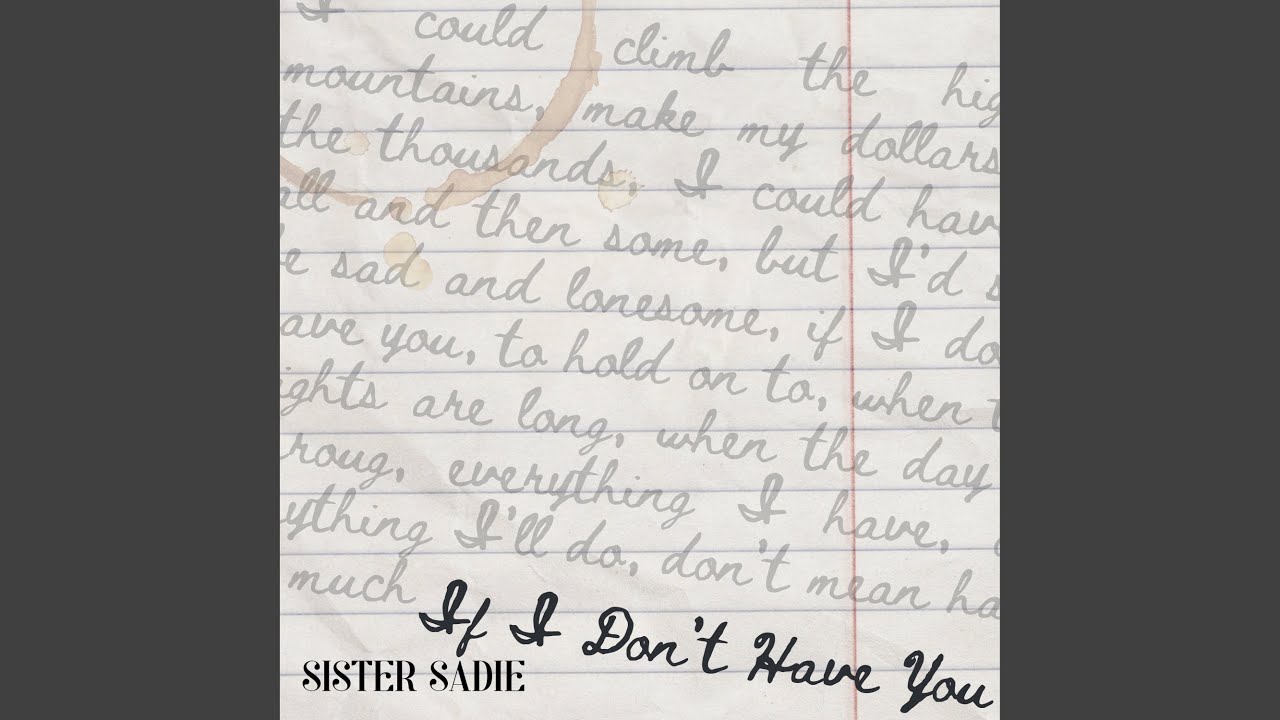 I could climb the hig
mountains, make my dollars
the thousands, I could hav
all and then some, but I'd s
e sad and lonesome, if I do
ave you, to hold on to, when t
ights are long, when the day
roug, everything I have,
ything I'll do, don't mean ha
much If I Don't Have You
SISTER SADIE